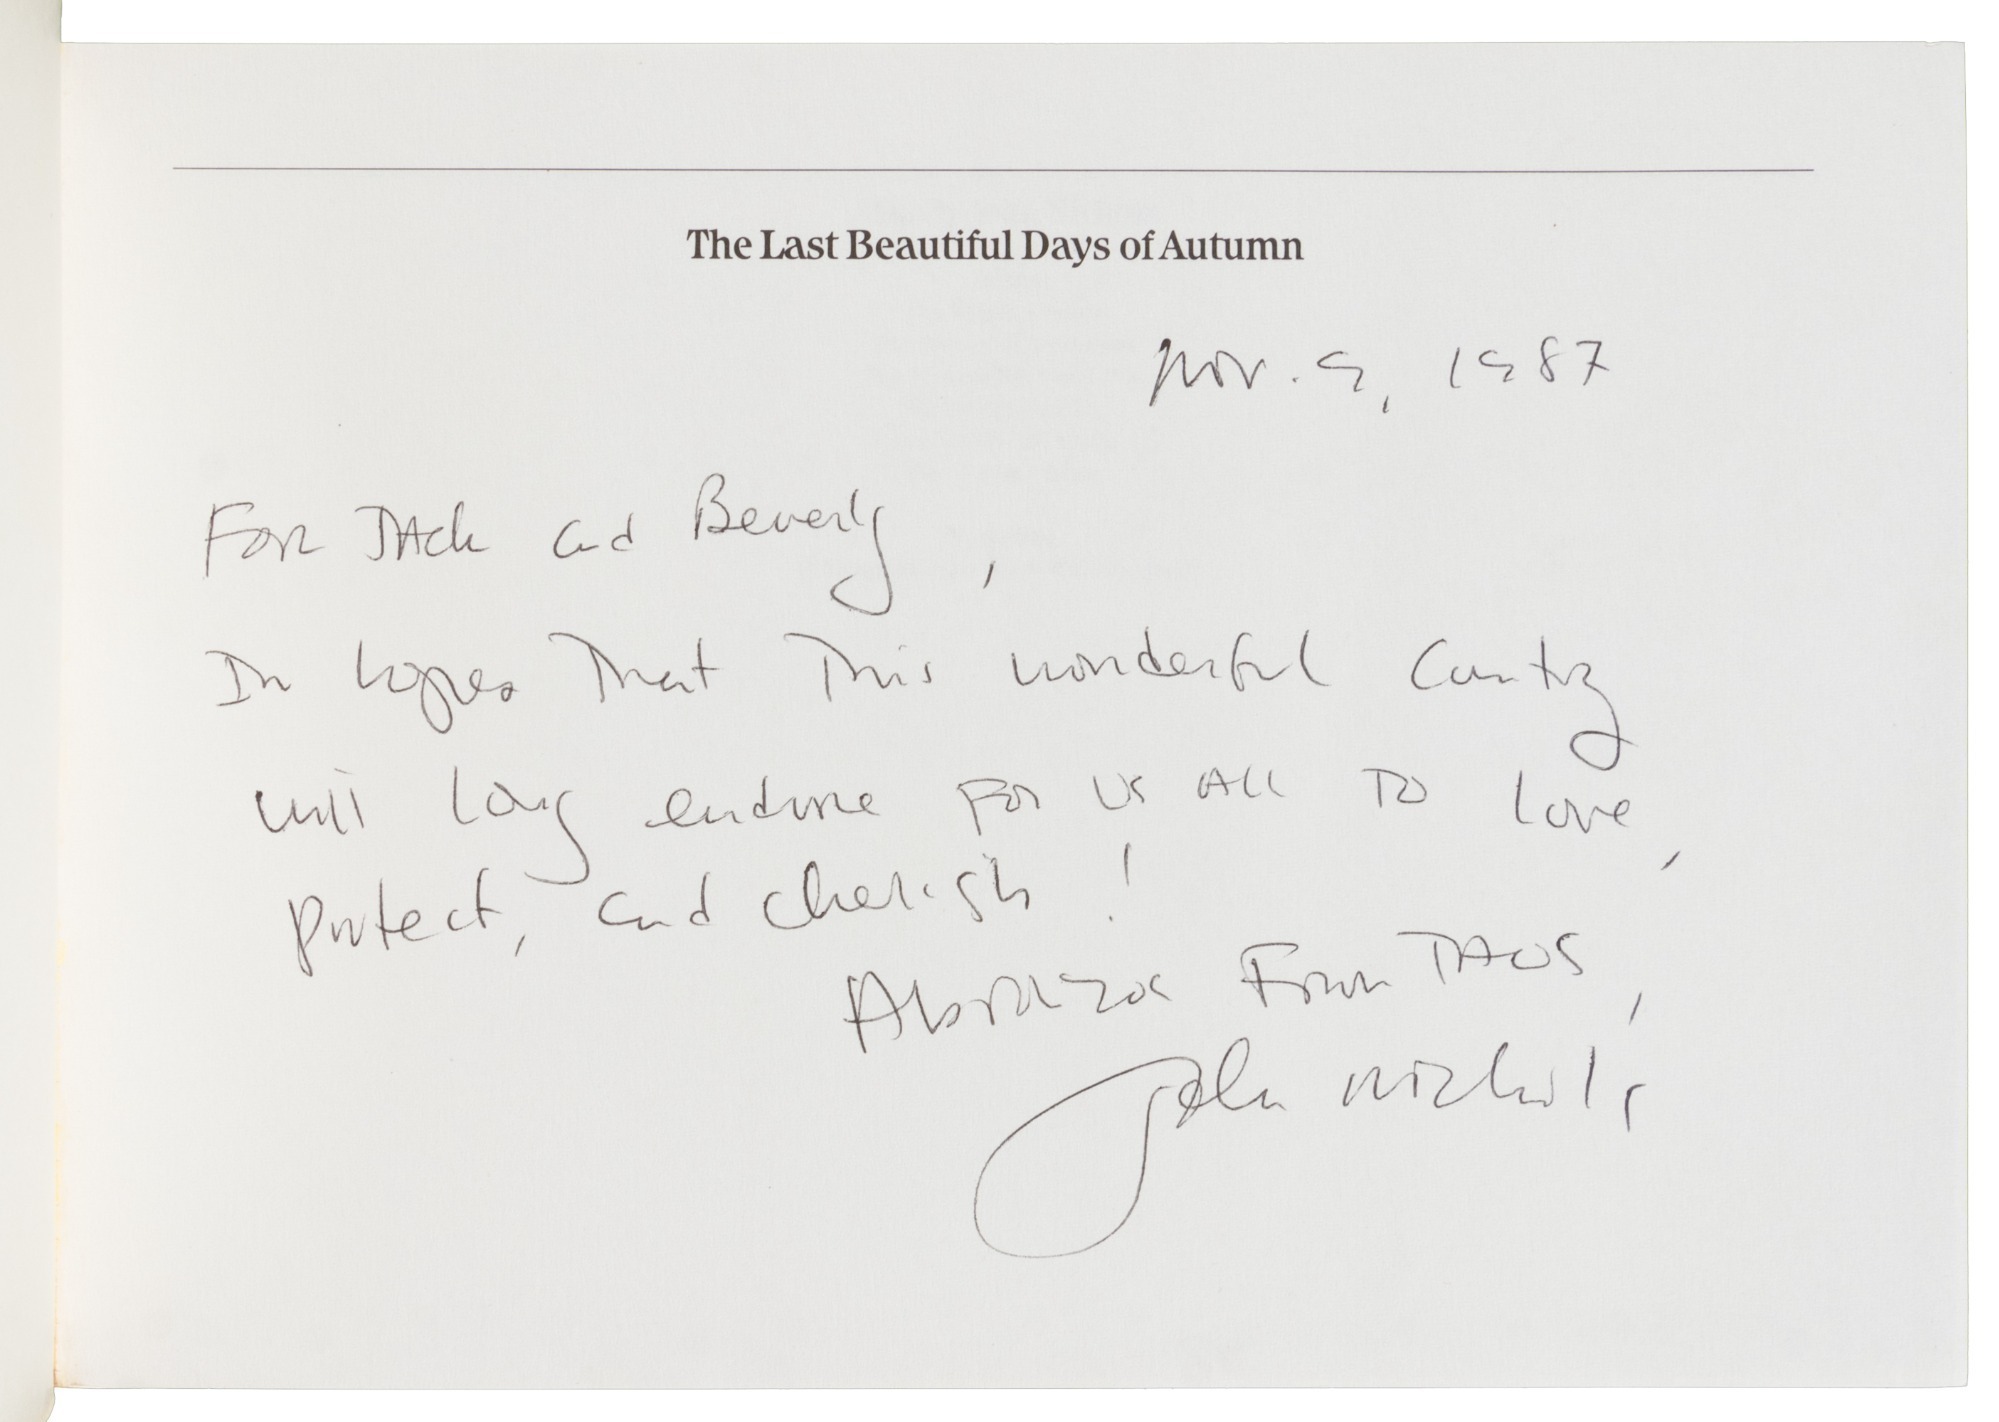 The Last Beautiful Days of Autumn
Nov. 9, 1987
For Jack and Beverly,
In hopes that this wonderful country
will long endure for us all to love,
protect, and cherish!
Abrazos from Taos,
John Nichols